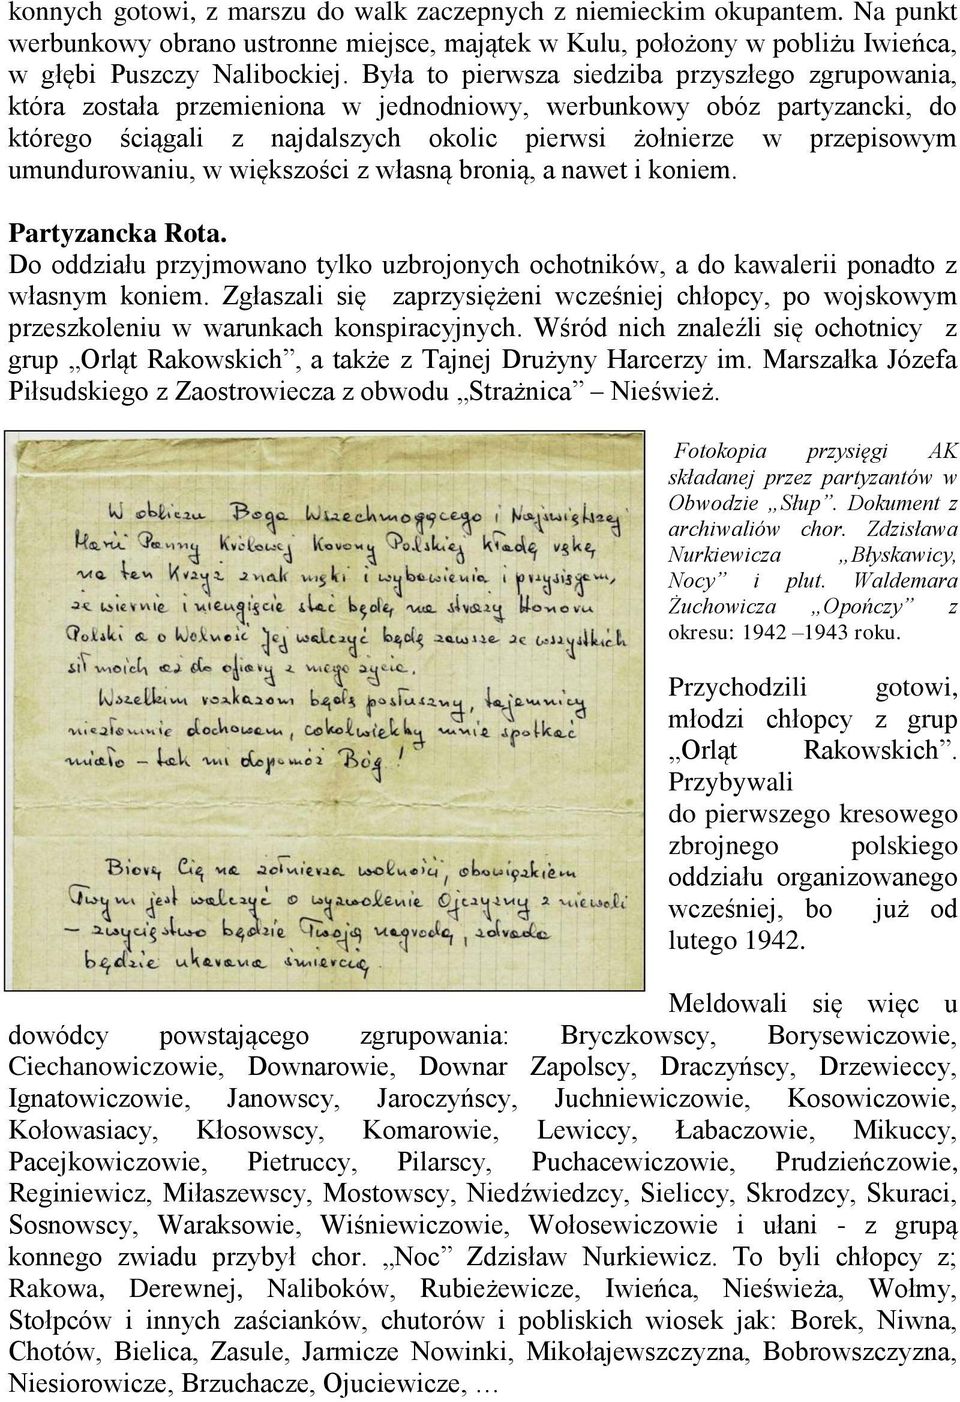 konnych gotowi, z marszu do walk zaczepnych z niemieckim okupantem. Na punkt
werbunkowy obrano ustronne miejsce, majątek w Kulu, położony w pobliżu Iwieńca,
w głębi Puszczy Nalibockiej. Była to pierwsza siedziba przyszłego zgrupowania,
która została przemieniona w jednodniowy, werbunkowy obóz partyzancki, do
którego ściągali z najdalszych okolic pierwsi żołnierze w przepisowym
umundurowaniu, w większości z własną bronią, a nawet i koniem.
Partyzancka Rota.
Do oddziału przyjmowano tylko uzbrojonych ochotników, a do kawalerii ponadto z
własnym koniem. Zgłaszali się zaprzysiężeni wcześniej chłopcy, po wojskowym
przeszkoleniu w warunkach konspiracyjnych. Wśród nich znaleźli się ochotnicy z
grup „Orląt Rakowskich", a także z Tajnej Drużyny Harcerzy im. Marszałka Józefa
Piłsudskiego z Zaostrowiecza z obwodu „Strażnica" – Nieśwież.
W obliczu Boga Wszechmogącego i Najświętszej
Marii Panny Królowej Korony Polskiej kładę rękę
na ten Krzyż znak męki i wybawienia i przysięgam,
że wiernie i nieugięcie stać będę na straży Honoru
Polski a o Wolność Jej walczyć będę zawsze ze wszystkich
sił moich aż do ofiary z mego życia.
Wszelkim rozkazom będę posłuszny, tajemnicy
niezłomnie dochowam, cokolwiekby mnie spotkać
miało – tak mi dopomóż Bóg!
Biorę Cię na żołnierza wolności, obowiązkiem
Twym jest walczyć o wyzwolenie Ojczyzny z niewoli
– zwycięstwo będzie Twoją nagrodą, zdrada
będzie ukarana śmiercią.
Fotokopia przysięgi AK
składanej przez partyzantów w
Obwodzie „Słup". Dokument z
archiwaliów chor. Zdzisława
Nurkiewicza „Błyskawicy,
Nocy" i plut. Waldemara
Żuchowicza „Opończy" z
okresu: 1942 –1943 roku.
Przychodzili gotowi,
młodzi chłopcy z grup
„Orląt Rakowskich".
Przybywali
do pierwszego kresowego
zbrojnego polskiego
oddziału organizowanego
wcześniej, bo już od
lutego 1942.
Meldowali się więc u
dowódcy powstającego zgrupowania: Bryczkowscy, Borysewiczowie,
Ciechanowiczowie, Downarowie, Downar Zapolscy, Draczyńscy, Drzewieccy,
Ignatowiczowie, Janowscy, Jaroczyńscy, Juchniewiczowie, Kosowiczowie,
Kołowasiacy, Kłosowscy, Komarowie, Lewiccy, Łabaczowie, Mikuccy,
Pacejkowiczowie, Pietruccy, Pilarscy, Puchacewiczowie, Prudzieńczowie,
Reginiewicz, Miłaszewscy, Mostowscy, Niedźwiedzcy, Sieliccy, Skrodzcy, Skuraci,
Sosnowscy, Waraksowie, Wiśniewiczowie, Wołosewiczowie i ułani - z grupą
konnego zwiadu przybył chor. „Noc" Zdzisław Nurkiewicz. To byli chłopcy z;
Rakowa, Derewnej, Naliboków, Rubieżewicze, Iwieńca, Nieświeża, Wołmy,
Stołpców i innych zaścianków, chutorów i pobliskich wiosek jak: Borek, Niwna,
Chotów, Bielica, Zasule, Jarmicze Nowinki, Mikołajewszczyzna, Bobrowszczyzna,
Niesiorowicze, Brzuchacze, Ojuciewicze, …